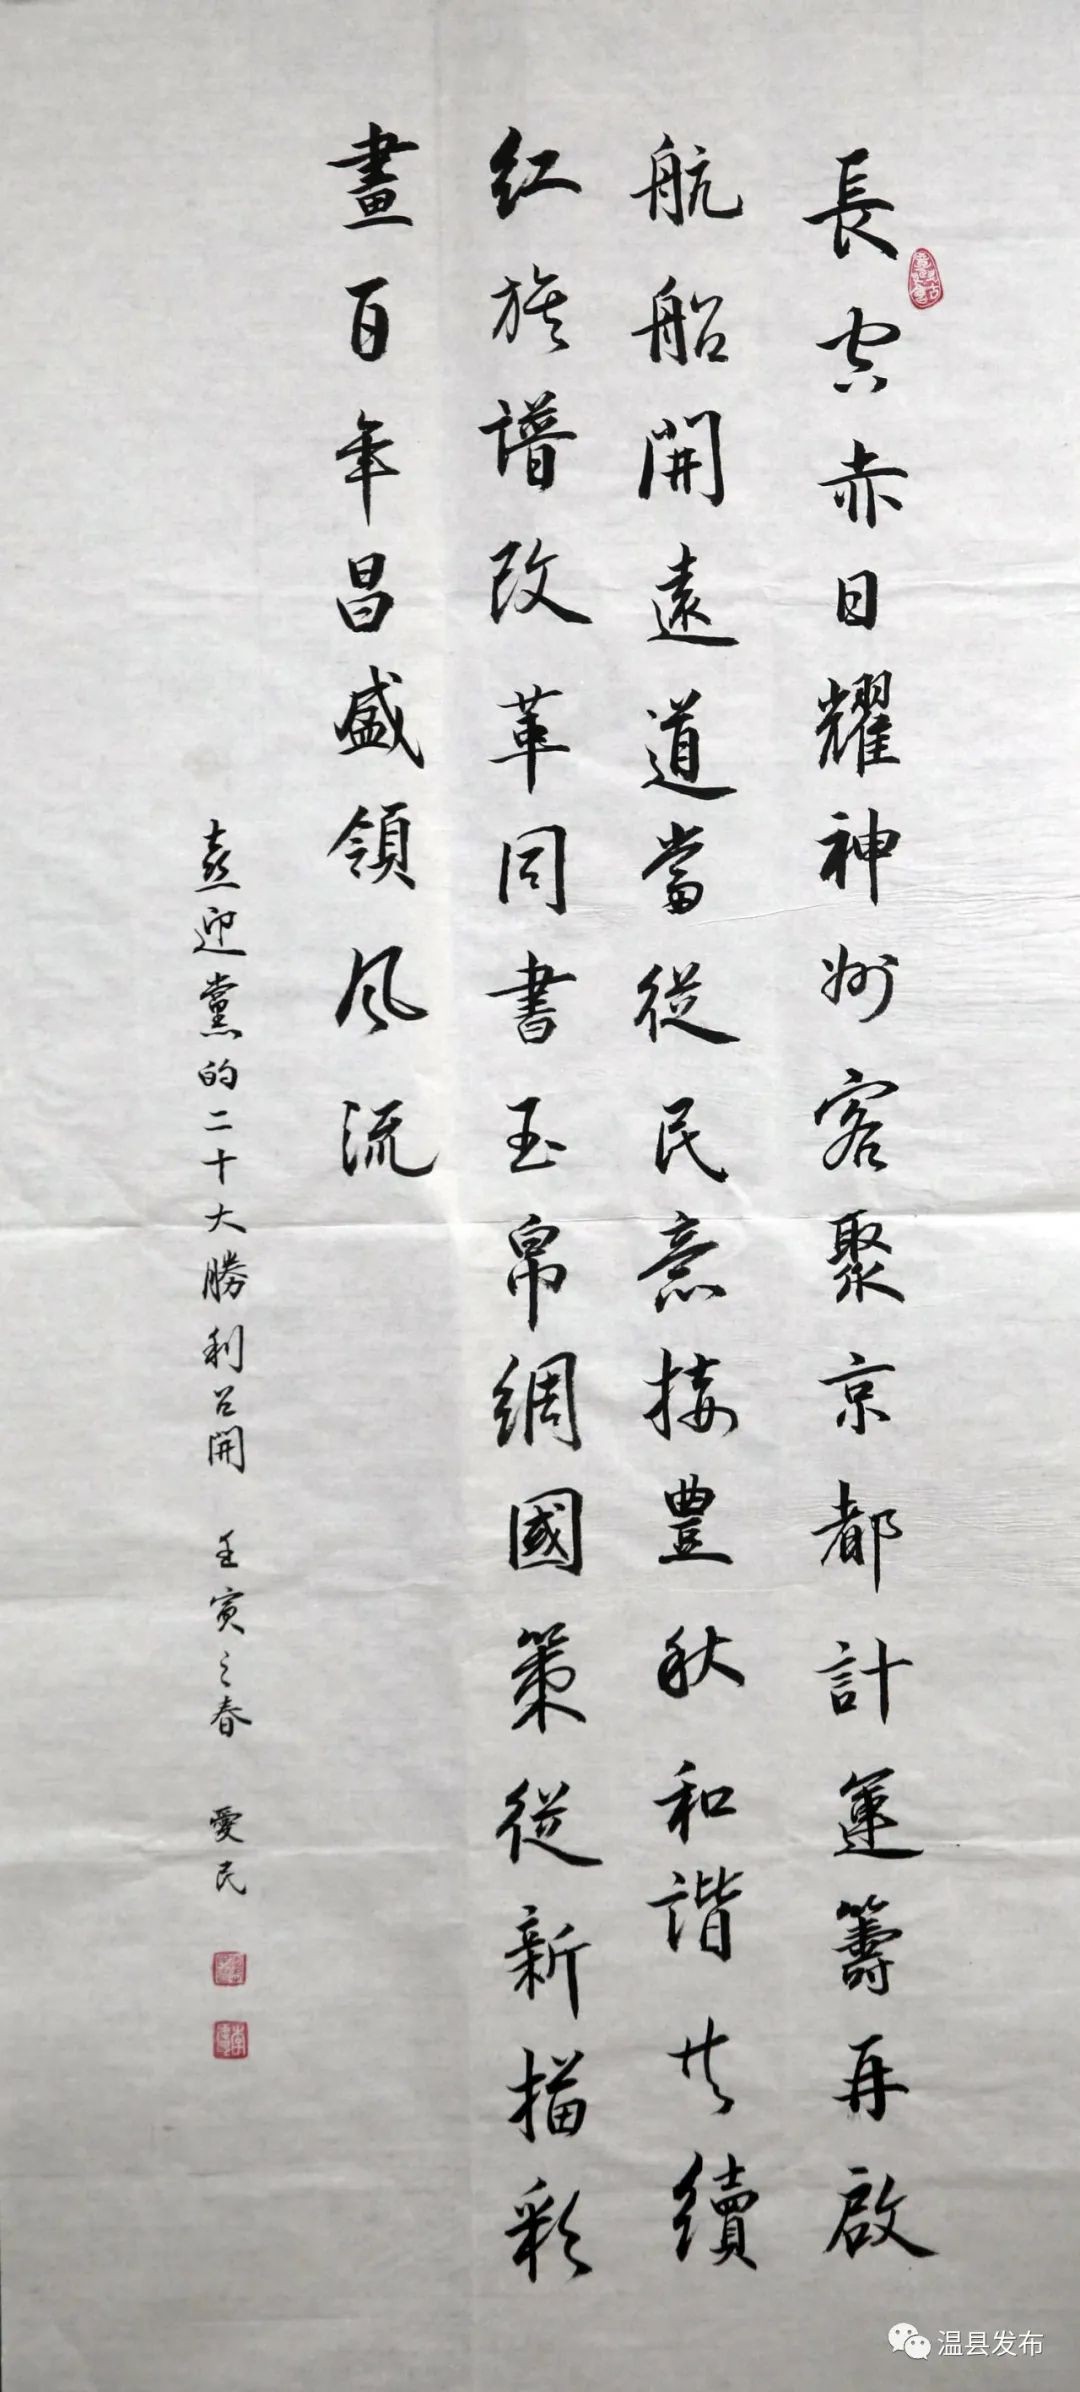 長空赤日耀神州客聚京都計運籌再啟
航船開遠道當從民意接豊秋和諧共續
红族譜改革同書玉帛綢國策從新描彩
畫百年昌盛領风流
喜迎黨的二十大勝利召開 壬寅之春 愛民
温县发布